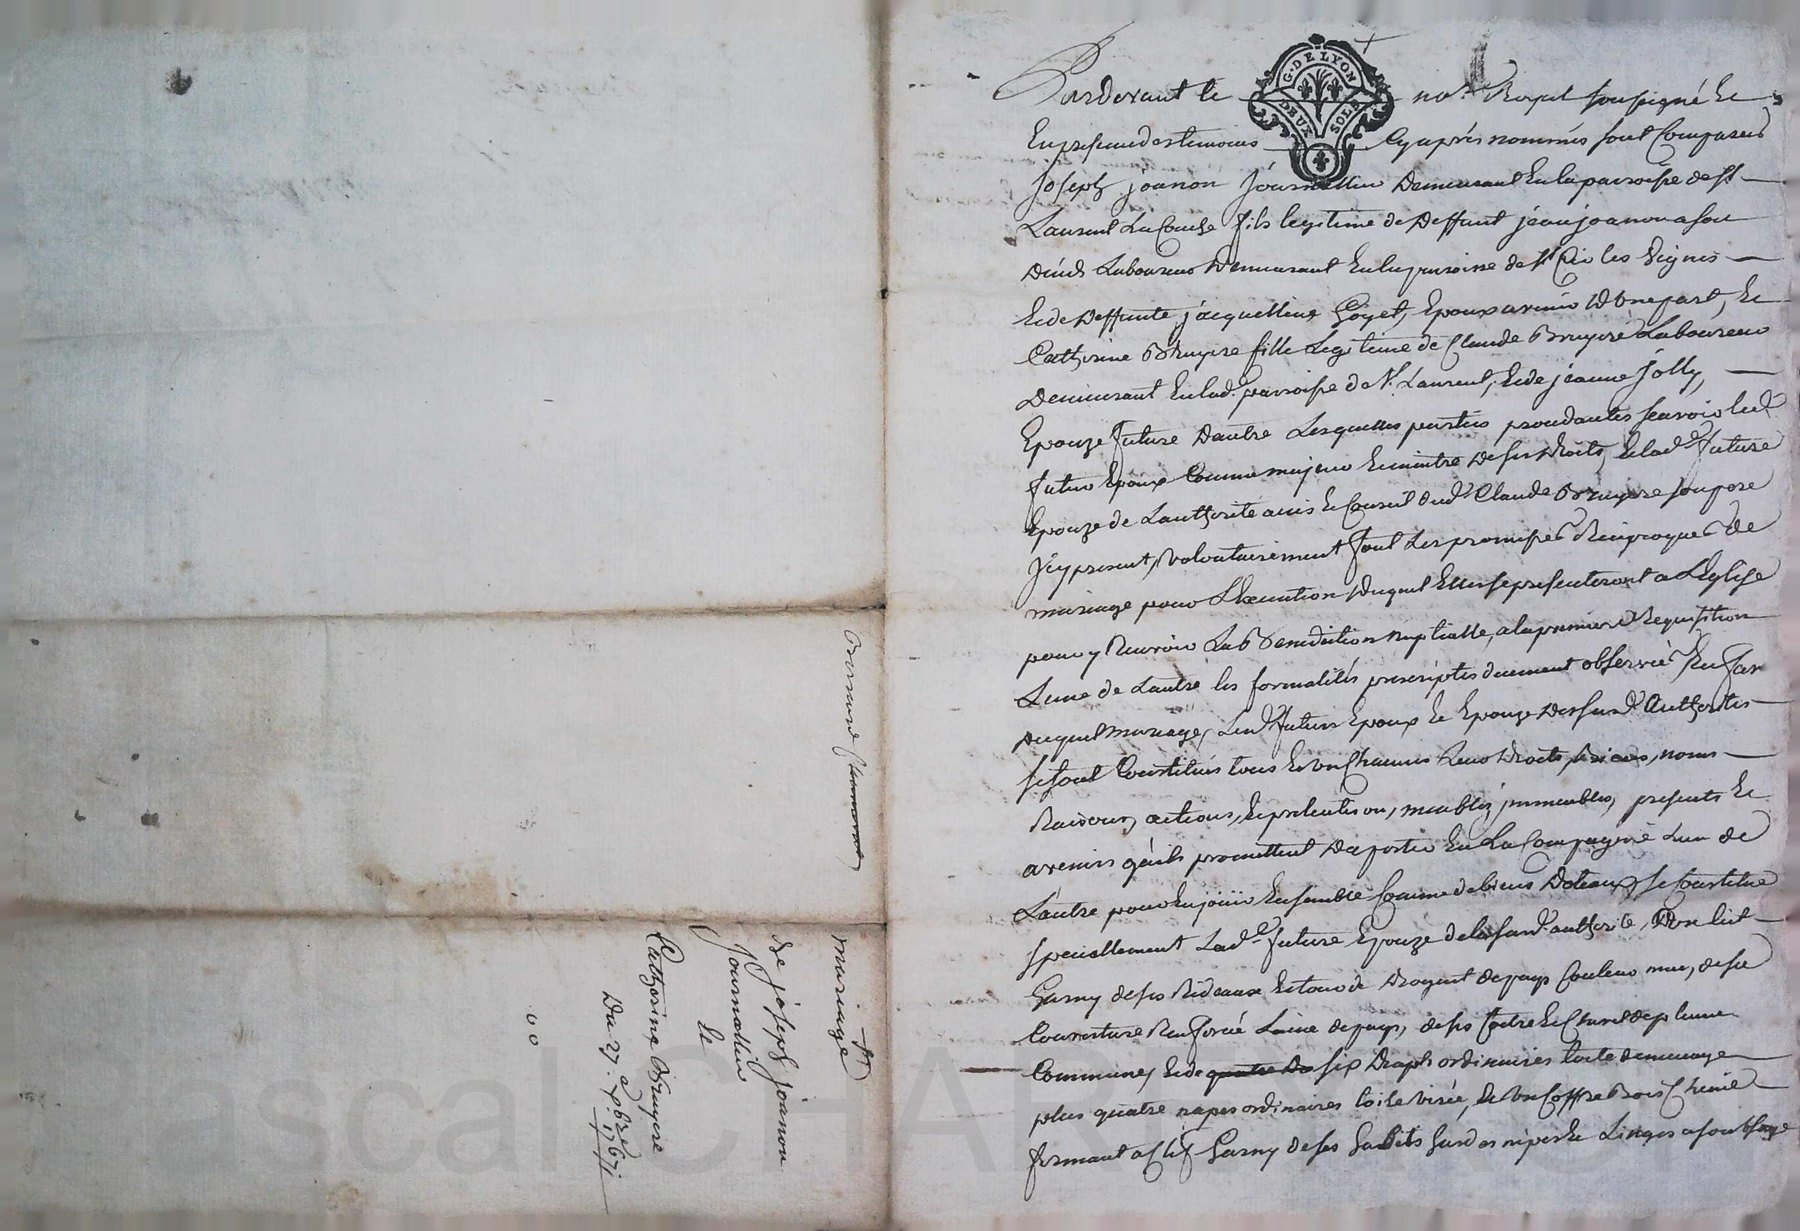 Pardevant le no.re Royal soussigné Et
G. DE LYON
DEUX SOLS
En presence des temoins Cy après nommés sont Comparus
joseph joanon journallier Demeurant En la parroisse de St
Laurent La Conche fils legitime de Deffunt jean joanon a son
Décéds Laboureur Demeurant En la parroisse de St Cir les Vignes
Et de Deffunte jacquelline Goyet, Epoux avenir D'Une part, Et
Catherine Bruyere fille Legitime de Claude Bruyere Laboureur
Demeurant En lad. parroisse de St. Laurent, Et de jeanne Jolly
Epouze future Dautre Lesquelles parties procedantes scavoir led.
futur Epoux Comme majeur Et maitre De ses droits, Et lad.e future
Epouze de L'authorité avis Et Conseil dud. Claude Bruyere son pere
Icy present, volontairement font Les promesses Reciproques de
mariage pour L'Execution Duquel Elles se presenteront a L'Eglise
pour y Recevoir La Benediction nuptialle, a la premiere Requisition
L'une de L'autre les formalités prescriptes duement observées En faveur
Duquel mariage, Lesd. futurs Epoux Et Epouze De lesus.d. Authorités
se sont Constitués tous Et Un Chacuns Leurs Droits noms
Raisons, actions, Et pretentions, meubles, jmmeubles, presents Et
avenirs qu'ils promettent D'aporter En La Compagnie L'un de
L'autre pour En jouir Ensemble Comme de biens Dotaux, se Constitue
speciallement Lad.e future Epouze de la susd. authorité, Un lit
Garny de ses Rideaux Et tour de Droguet de pays Couleur mur, de sa
Couverture Laine de pays, de ses de plume
Commune, Et de quatre Dr six Draps ordinaires toile de menage
plus quatre napes ordinaires toile virée, Et Un Coffre Bois Chene
fermant a Clef Garny de ses habits hardes nipes Et Linges a son Usage
mariage
De joseph joanon
Journallier
Et
Catherine Bruyere
Du 27. a 7bre 1767